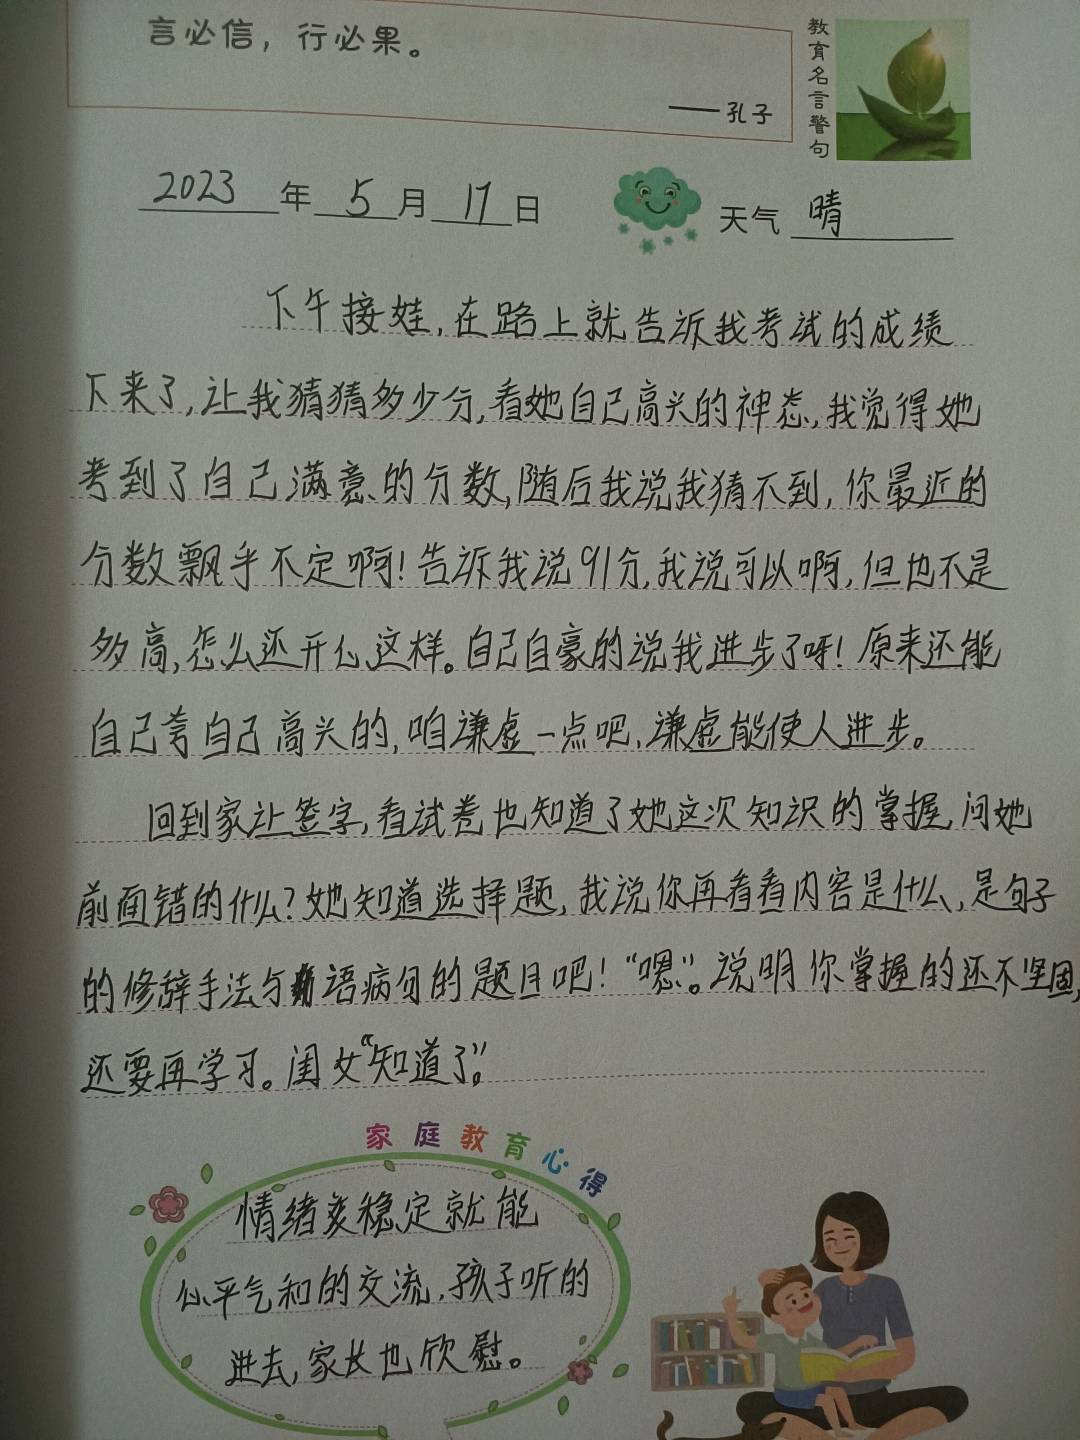 言必信，行必果。
——孔子
教育名言警句
2023年5月17日
天气 晴
下午接娃,在路上就告诉我考试的成绩
下来了,让我猜猜多少分,看她自己高兴的神态,我觉得她
考到了自己满意的分数,随后我说我猜不到,你最近的
分数飘乎不定啊!告诉我说91分,我说可以啊,但也不是
多高,怎么还开心这样。自己自豪的说我进步了呀!原来还能
自己夸自己高兴的,咱谦虚一点吧,谦虚能使人进步。
回到家让签字,看试卷也知道了她这次知识的掌握,问她
前面错的什么?她知道选择题,我说你再看看内容是什么,是句子
的修辞手法与语病句的题目吧!“嗯”。说明你掌握的还不坚固,
还要再学习。闺女“知道了”。
家庭教育心得
情绪变稳定就能
心平气和的交流,孩子听的
进去,家长也欣慰。